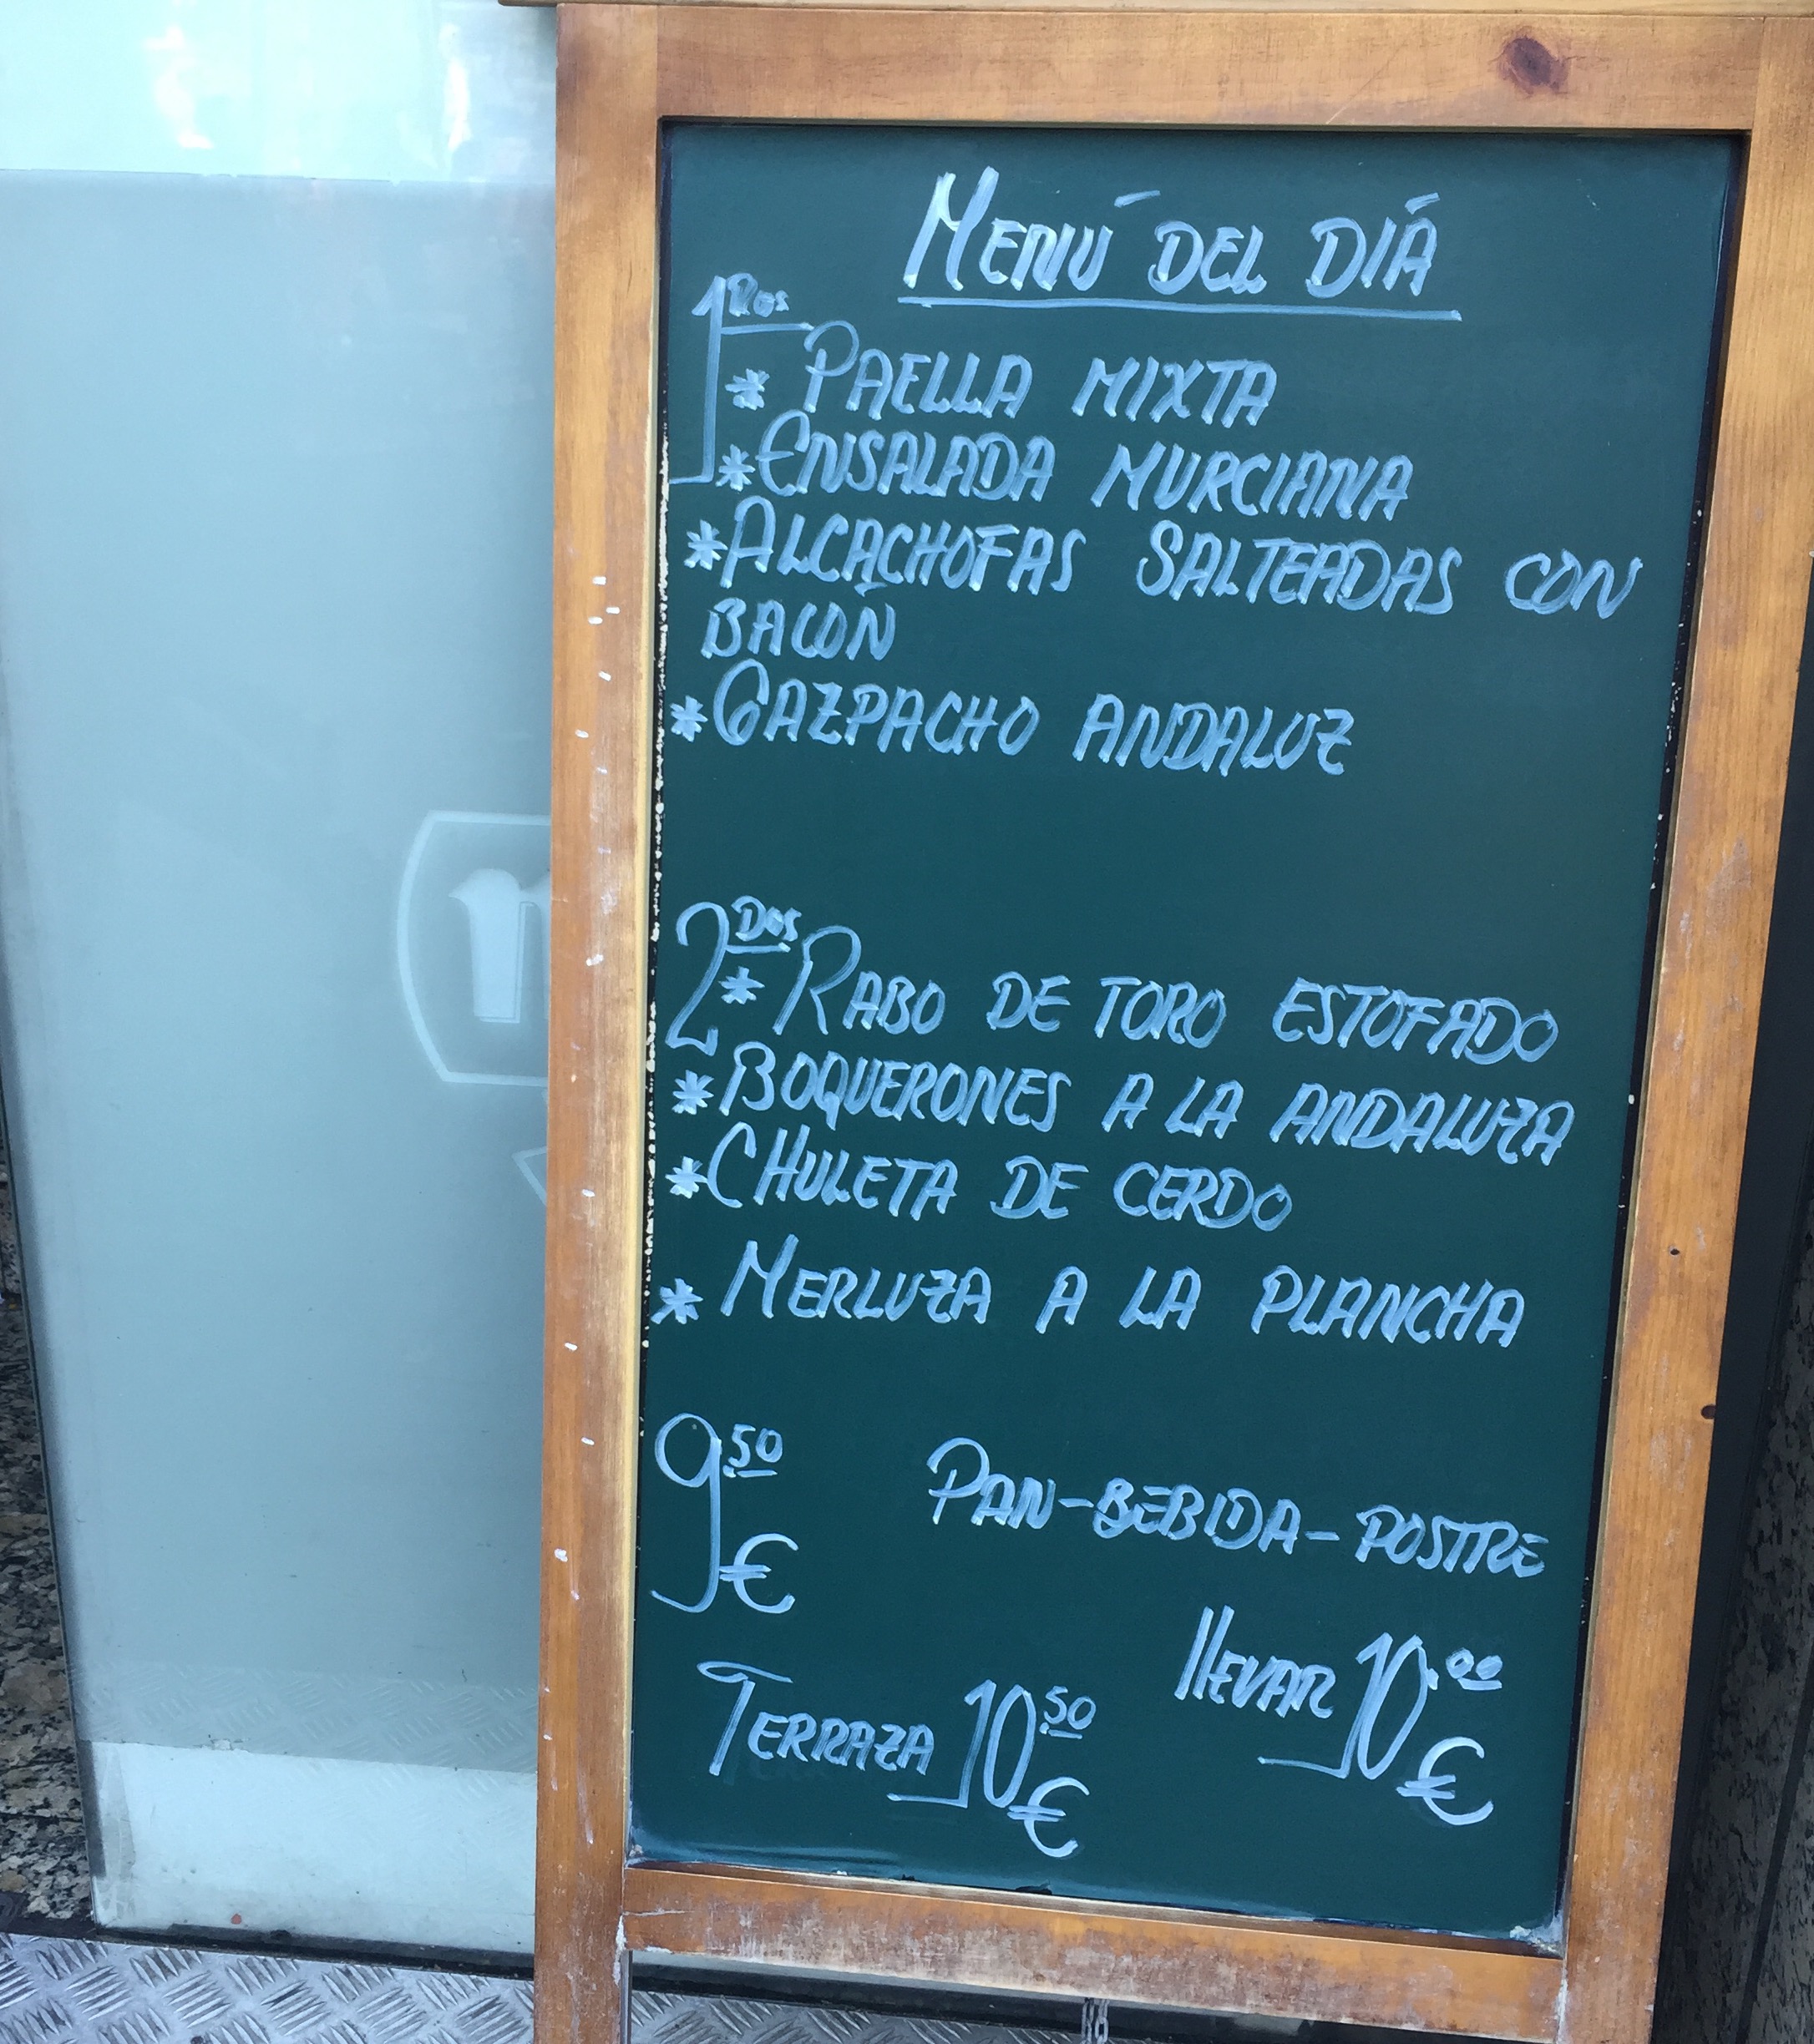 MENÚ DEL DIÁ
1ROS
* PAELLA MIXTA
* ENSALADA MURCIANA
* ALCACHOFAS SALTEADAS CON
BACON
* GAZPACHO ANDALUZ
2DOS
* RABO DE TORO ESTOFADO
* BOQUERONES A LA ANDALUZA
* CHULETA DE CERDO
* MERLUZA A LA PLANCHA
9.50 €
PAN-BEBIDA-POSTRE
TERRAZA 10.50 €
llEVAR 10.00 €